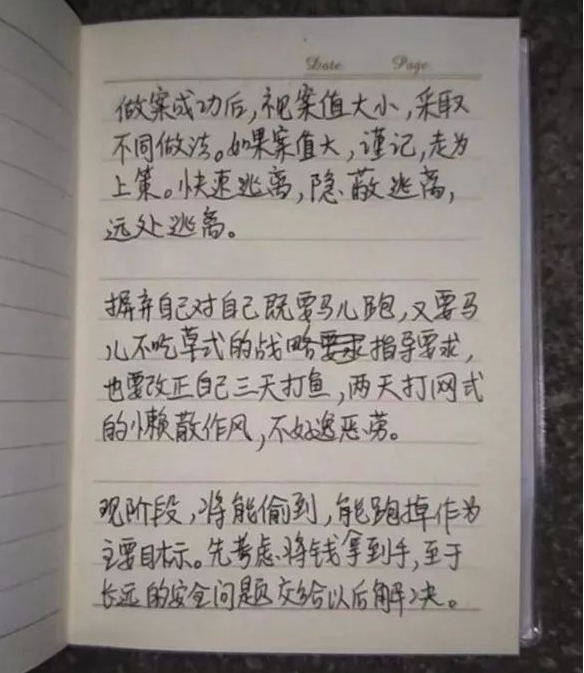 Date Page
做案成功后，视案值大小，采取
不同做法。如果案值大，谨记，走为
上策。快速逃离，隐蔽逃离，
远处逃离。
摒弃自己对自己既要马儿跑，又要马
儿不吃草式的战略要求指导要求，
也要改正自己三天打鱼，两天打网式
的懒散作风，不好逸恶劳。
现阶段，将能偷到，能跑掉作为
主要目标。先考虑将钱拿到手，至于
长远的安全问题交给以后解决。